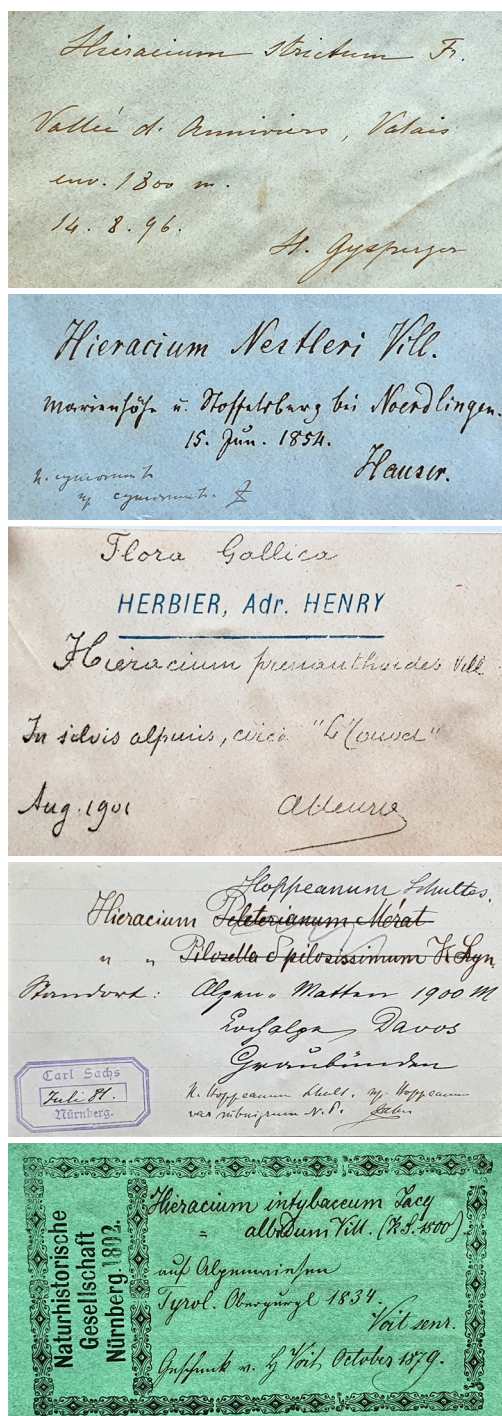 Hieracium strictum Fr.
Vallée d'Anniviers, Valais
env. 1800 m.
14. 8. 96.
H. Gysperger
Hieracium Nestleri Vill.
Marienhöhe u. Stoffelsberg bei Noerdlingen.
15. Jun. 1854.
Hauser.
H. cymosum
cymosum
Flora Gallica
HERBIER, Adr. HENRY
Hieracium prenanthoides Vill
In silvis alpinis, circa
Aug. 1901
Hoppeanum Schultes.
Hieracium Peleterianum Mérat
" " Pilosella pilosissimum
Standort: Alpen-Matten 1900 M
Davos
Graubünden
Carl Sachs
Juli 81.
Nürnberg.
H. Hoppeanum Schult. Hoppeanum
var. N. P.
Naturhistorische
Gesellschaft
Nürnberg 1802.
Hieracium intybaceum Jacq
= albidum Vill. (K. S. 1500).
auf Alpenwiesen
Tyrol. Obergurgl 1834.
Voit senr.
Geschenk v. H Voit October 1879.